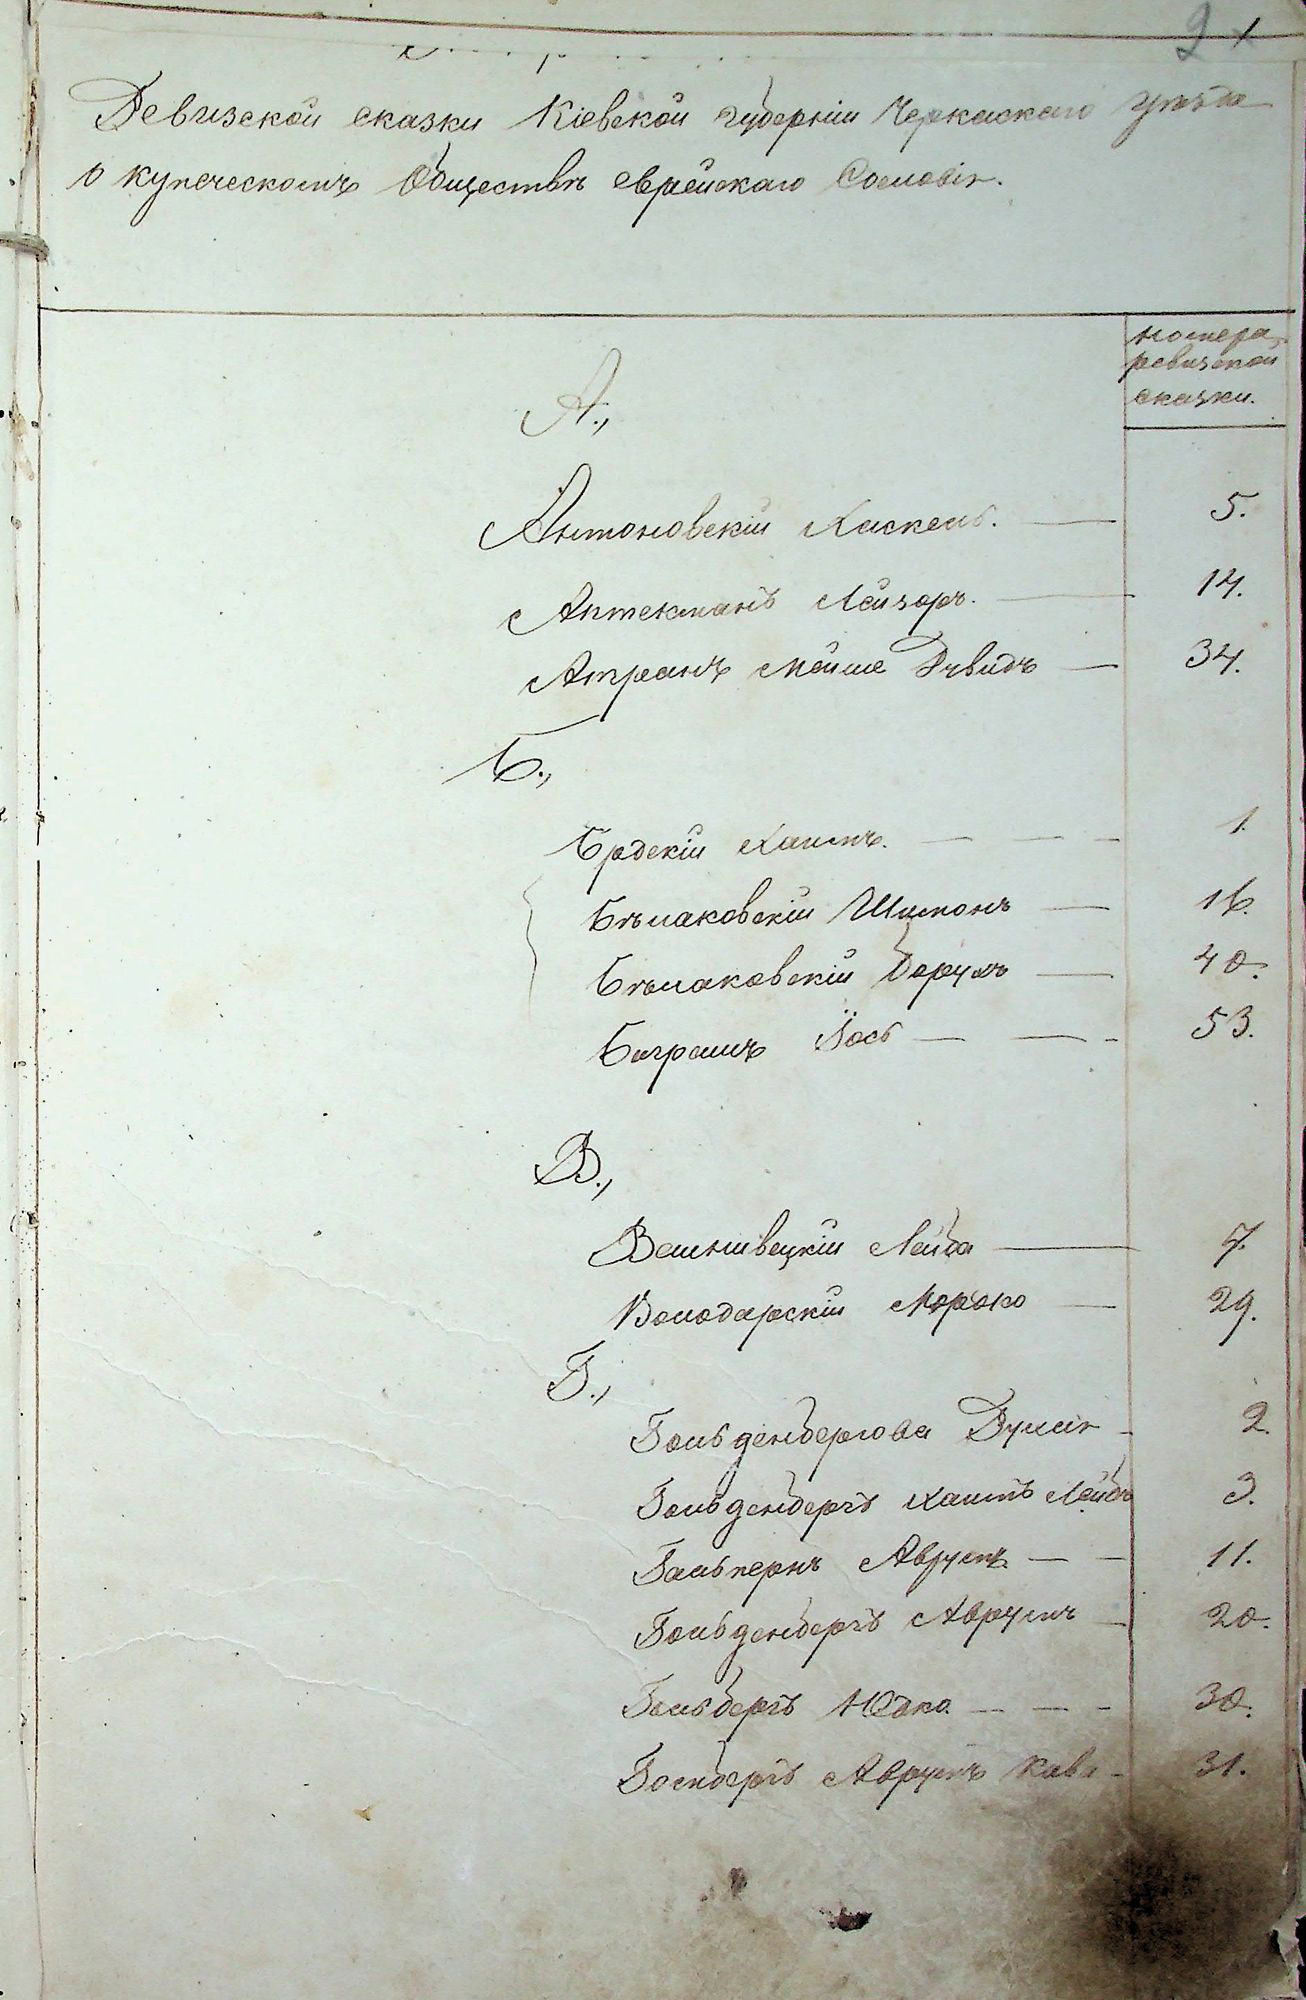 2
Ревизской сказки Кіевской губерніи Черкаскаго уѣзда
о купеческомъ Обществѣ еврейскаго Сословія.
номера
ревизской
сказки.
А.,
Антоновскій Хаскель. — 5.
Аптекманъ Лейзоръ. — 14.
Атранъ Мойше Дувидъ — 34.
Б.,
Бродскій Хаимъ. — — — 1.
Бѣлаковскій Шимонъ — 16.
Бѣлаковскій Борухъ — 40.
Баграшъ Іось — — - 53.
В.,
Вешнивецкій Лейба — 7.
Володарскій Мордко — 29.
Г.,
Гольденбергова Думя - 2.
Гольденбергъ Хаимъ Лейбъ 3.
Гальпернъ Аврумъ — — 11.
Гольденбергъ Аврумъ — 20.
Гольбергъ Юдко — — - 30.
Аврумъ - 31.